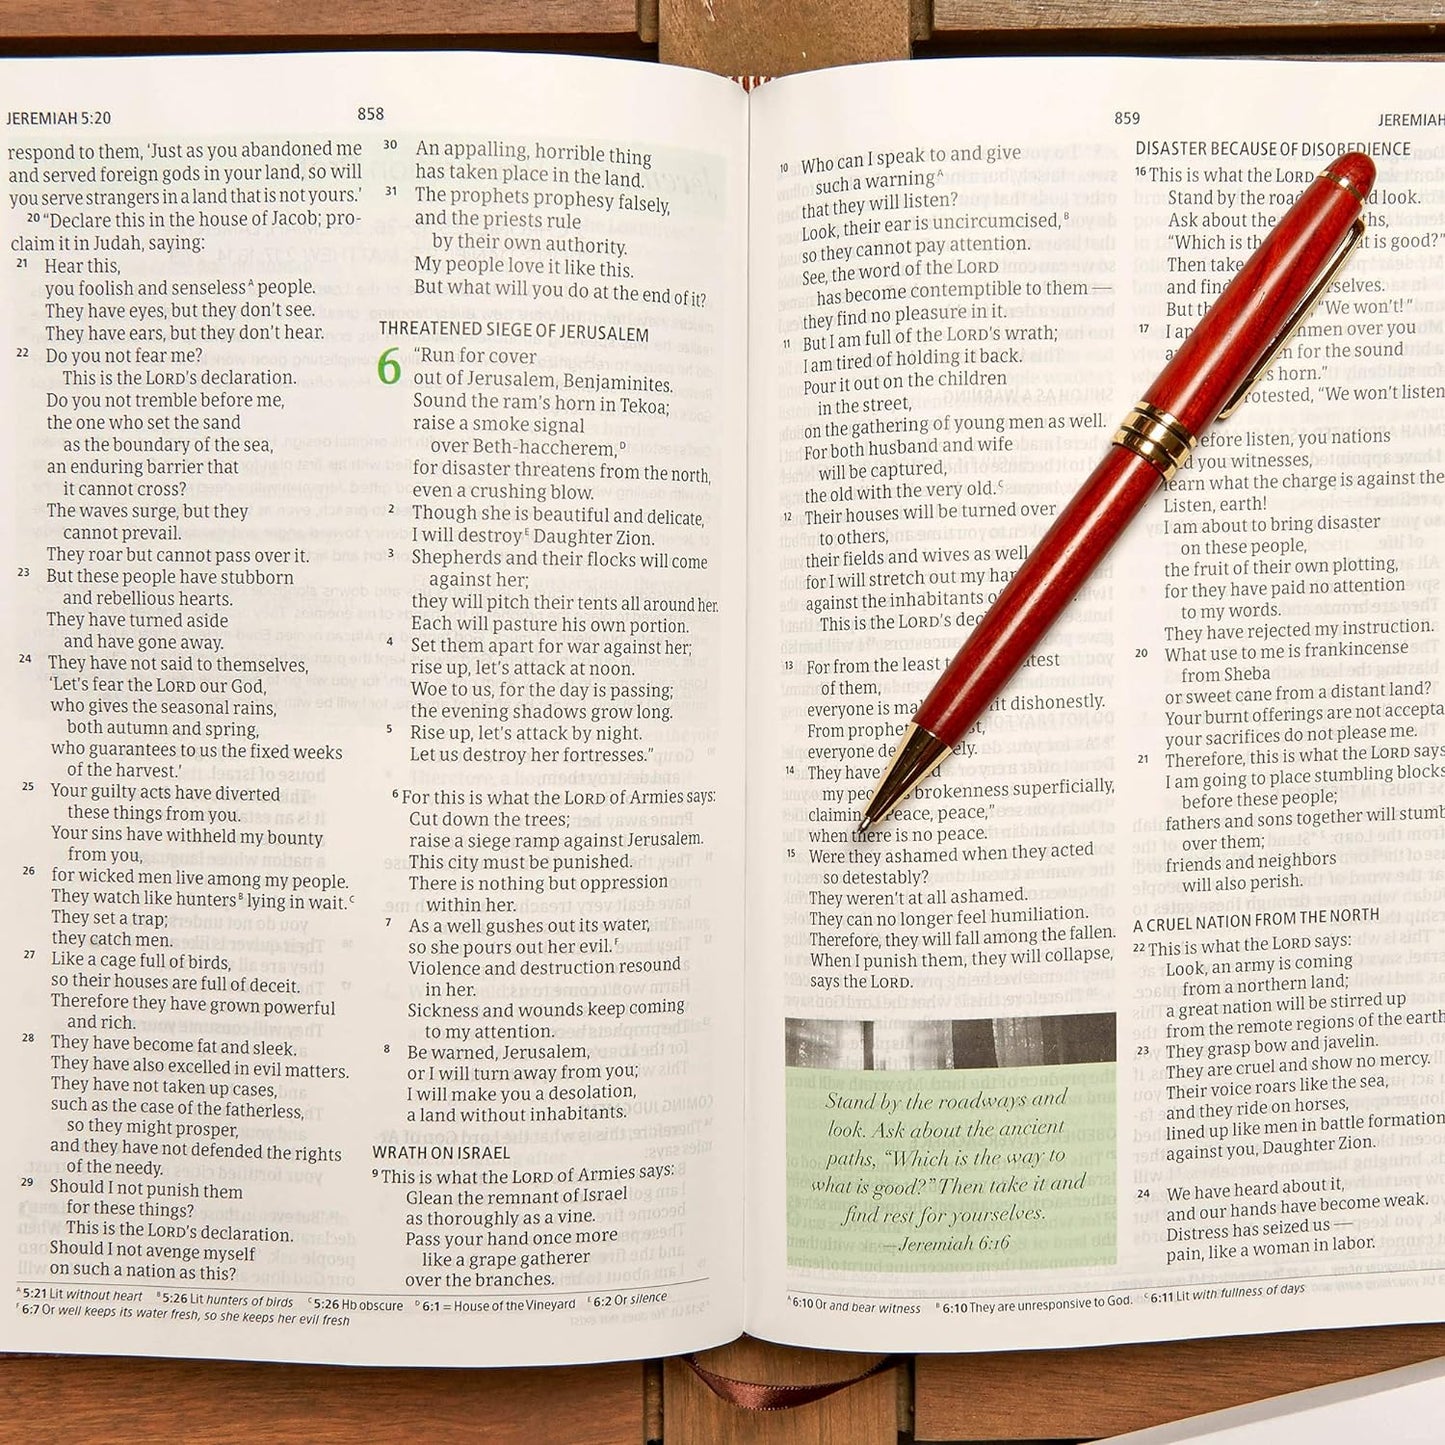 JEREMIAH 5:20
858
respond to them, ‘Just as you abandoned me
and served foreign gods in your land, so will
you serve strangers in a land that is not yours.’
20 “Declare this in the house of Jacob; pro-
claim it in Judah, saying:
21 Hear this,
you foolish and senseless A people.
They have eyes, but they don’t see.
They have ears, but they don’t hear.
22 Do you not fear me?
This is the LORD’s declaration.
Do you not tremble before me,
the one who set the sand
as the boundary of the sea,
an enduring barrier that
it cannot cross?
The waves surge, but they
cannot prevail.
They roar but cannot pass over it.
23 But these people have stubborn
and rebellious hearts.
They have turned aside
and have gone away.
24 They have not said to themselves,
‘Let’s fear the LORD our God,
who gives the seasonal rains,
both autumn and spring,
who guarantees to us the fixed weeks
of the harvest.’
25 Your guilty acts have diverted
these things from you.
Your sins have withheld my bounty
from you,
26 for wicked men live among my people.
They watch like hunters B lying in wait. C
They set a trap;
they catch men.
27 Like a cage full of birds,
so their houses are full of deceit.
Therefore they have grown powerful
and rich.
28 They have become fat and sleek.
They have also excelled in evil matters.
They have not taken up cases,
such as the case of the fatherless,
so they might prosper,
and they have not defended the rights
of the needy.
29 Should I not punish them
for these things?
This is the LORD’s declaration.
Should I not avenge myself
on such a nation as this?
30 An appalling, horrible thing
has taken place in the land.
31 The prophets prophesy falsely,
and the priests rule
by their own authority.
My people love it like this.
But what will you do at the end of it?
THREATENED SIEGE OF JERUSALEM
6 “Run for cover
out of Jerusalem, Benjaminites.
Sound the ram’s horn in Tekoa;
raise a smoke signal
over Beth-haccherem, D
for disaster threatens from the north,
even a crushing blow.
2 Though she is beautiful and delicate,
I will destroy E Daughter Zion.
3 Shepherds and their flocks will come
against her;
they will pitch their tents all around her.
Each will pasture his own portion.
4 Set them apart for war against her;
rise up, let’s attack at noon.
Woe to us, for the day is passing;
the evening shadows grow long.
5 Rise up, let’s attack by night.
Let us destroy her fortresses.”
6 For this is what the LORD of Armies says:
Cut down the trees;
raise a siege ramp against Jerusalem.
This city must be punished.
There is nothing but oppression
within her.
7 As a well gushes out its water,
so she pours out her evil. F
Violence and destruction resound
in her.
Sickness and wounds keep coming
to my attention.
8 Be warned, Jerusalem,
or I will turn away from you;
I will make you a desolation,
a land without inhabitants.
WRATH ON ISRAEL
9 This is what the LORD of Armies says:
Glean the remnant of Israel
as thoroughly as a vine.
Pass your hand once more
like a grape gatherer
over the branches.
A 5:21 Lit without heart B 5:26 Lit hunters of birds C 5:26 Hb obscure D 6:1 = House of the Vineyard E 6:2 Or silence
F 6:7 Or well keeps its water fresh, so she keeps her evil fresh
859
JEREMIAH
10 Who can I speak to and give
such a warning A
that they will listen?
Look, their ear is uncircumcised, B
so they cannot pay attention.
See, the word of the LORD
has become contemptible to them —
they find no pleasure in it.
11 But I am full of the LORD’s wrath;
I am tired of holding it back.
Pour it out on the children
in the street,
on the gathering of young men as well.
For both husband and wife
will be captured,
the old with the very old. C
12 Their houses will be turned over
to others,
their fields and wives as well
for I will stretch out my
against the inhabitants
This is the LORD’s
13 For from the least
of them,
everyone is dishonestly.
From
everyone
14 They have
my brokenness superficially,
claiming, “Peace, peace,”
when there is no peace.
15 Were they ashamed when they acted
so detestably?
They weren’t at all ashamed.
They can no longer feel humiliation.
Therefore, they will fall among the fallen.
When I punish them, they will collapse,
says the LORD.
Stand by the roadways and
look. Ask about the ancient
paths, “Which is the way to
what is good?” Then take it and
find rest for yourselves.
—Jeremiah 6:16
DISASTER BECAUSE OF DISOBEDIENCE
16 This is what the LORD
Stand by the look.
Ask about the
“Which is is good?”
Then take
and find
But “We won’t!”
17 I over you
for the sound
horn.”
“We won’t listen
listen, you nations
you witnesses,
learn what the charge is against the
Listen, earth!
I am about to bring disaster
on these people,
the fruit of their own plotting,
for they have paid no attention
to my words.
They have rejected my instruction.
20 What use to me is frankincense
from Sheba
or sweet cane from a distant land?
Your burnt offerings are not
your sacrifices do not please me.
21 Therefore, this is what the LORD says
I am going to place stumbling blocks
before these people;
fathers and sons together will
over them;
friends and neighbors
will also perish.
A CRUEL NATION FROM THE NORTH
22 This is what the LORD says:
Look, an army is coming
from a northern land;
a great nation will be stirred up
from the remote regions of the earth
23 They grasp bow and javelin.
They are cruel and show no mercy.
Their voice roars like the sea,
and they ride on horses,
lined up like men in battle formation
against you, Daughter Zion.
24 We have heard about it,
and our hands have become weak.
Distress has seized us —
pain, like a woman in labor.
A 6:10 Or and bear witness B 6:10 They are unresponsive to God. C 6:11 Lit with fullness of days